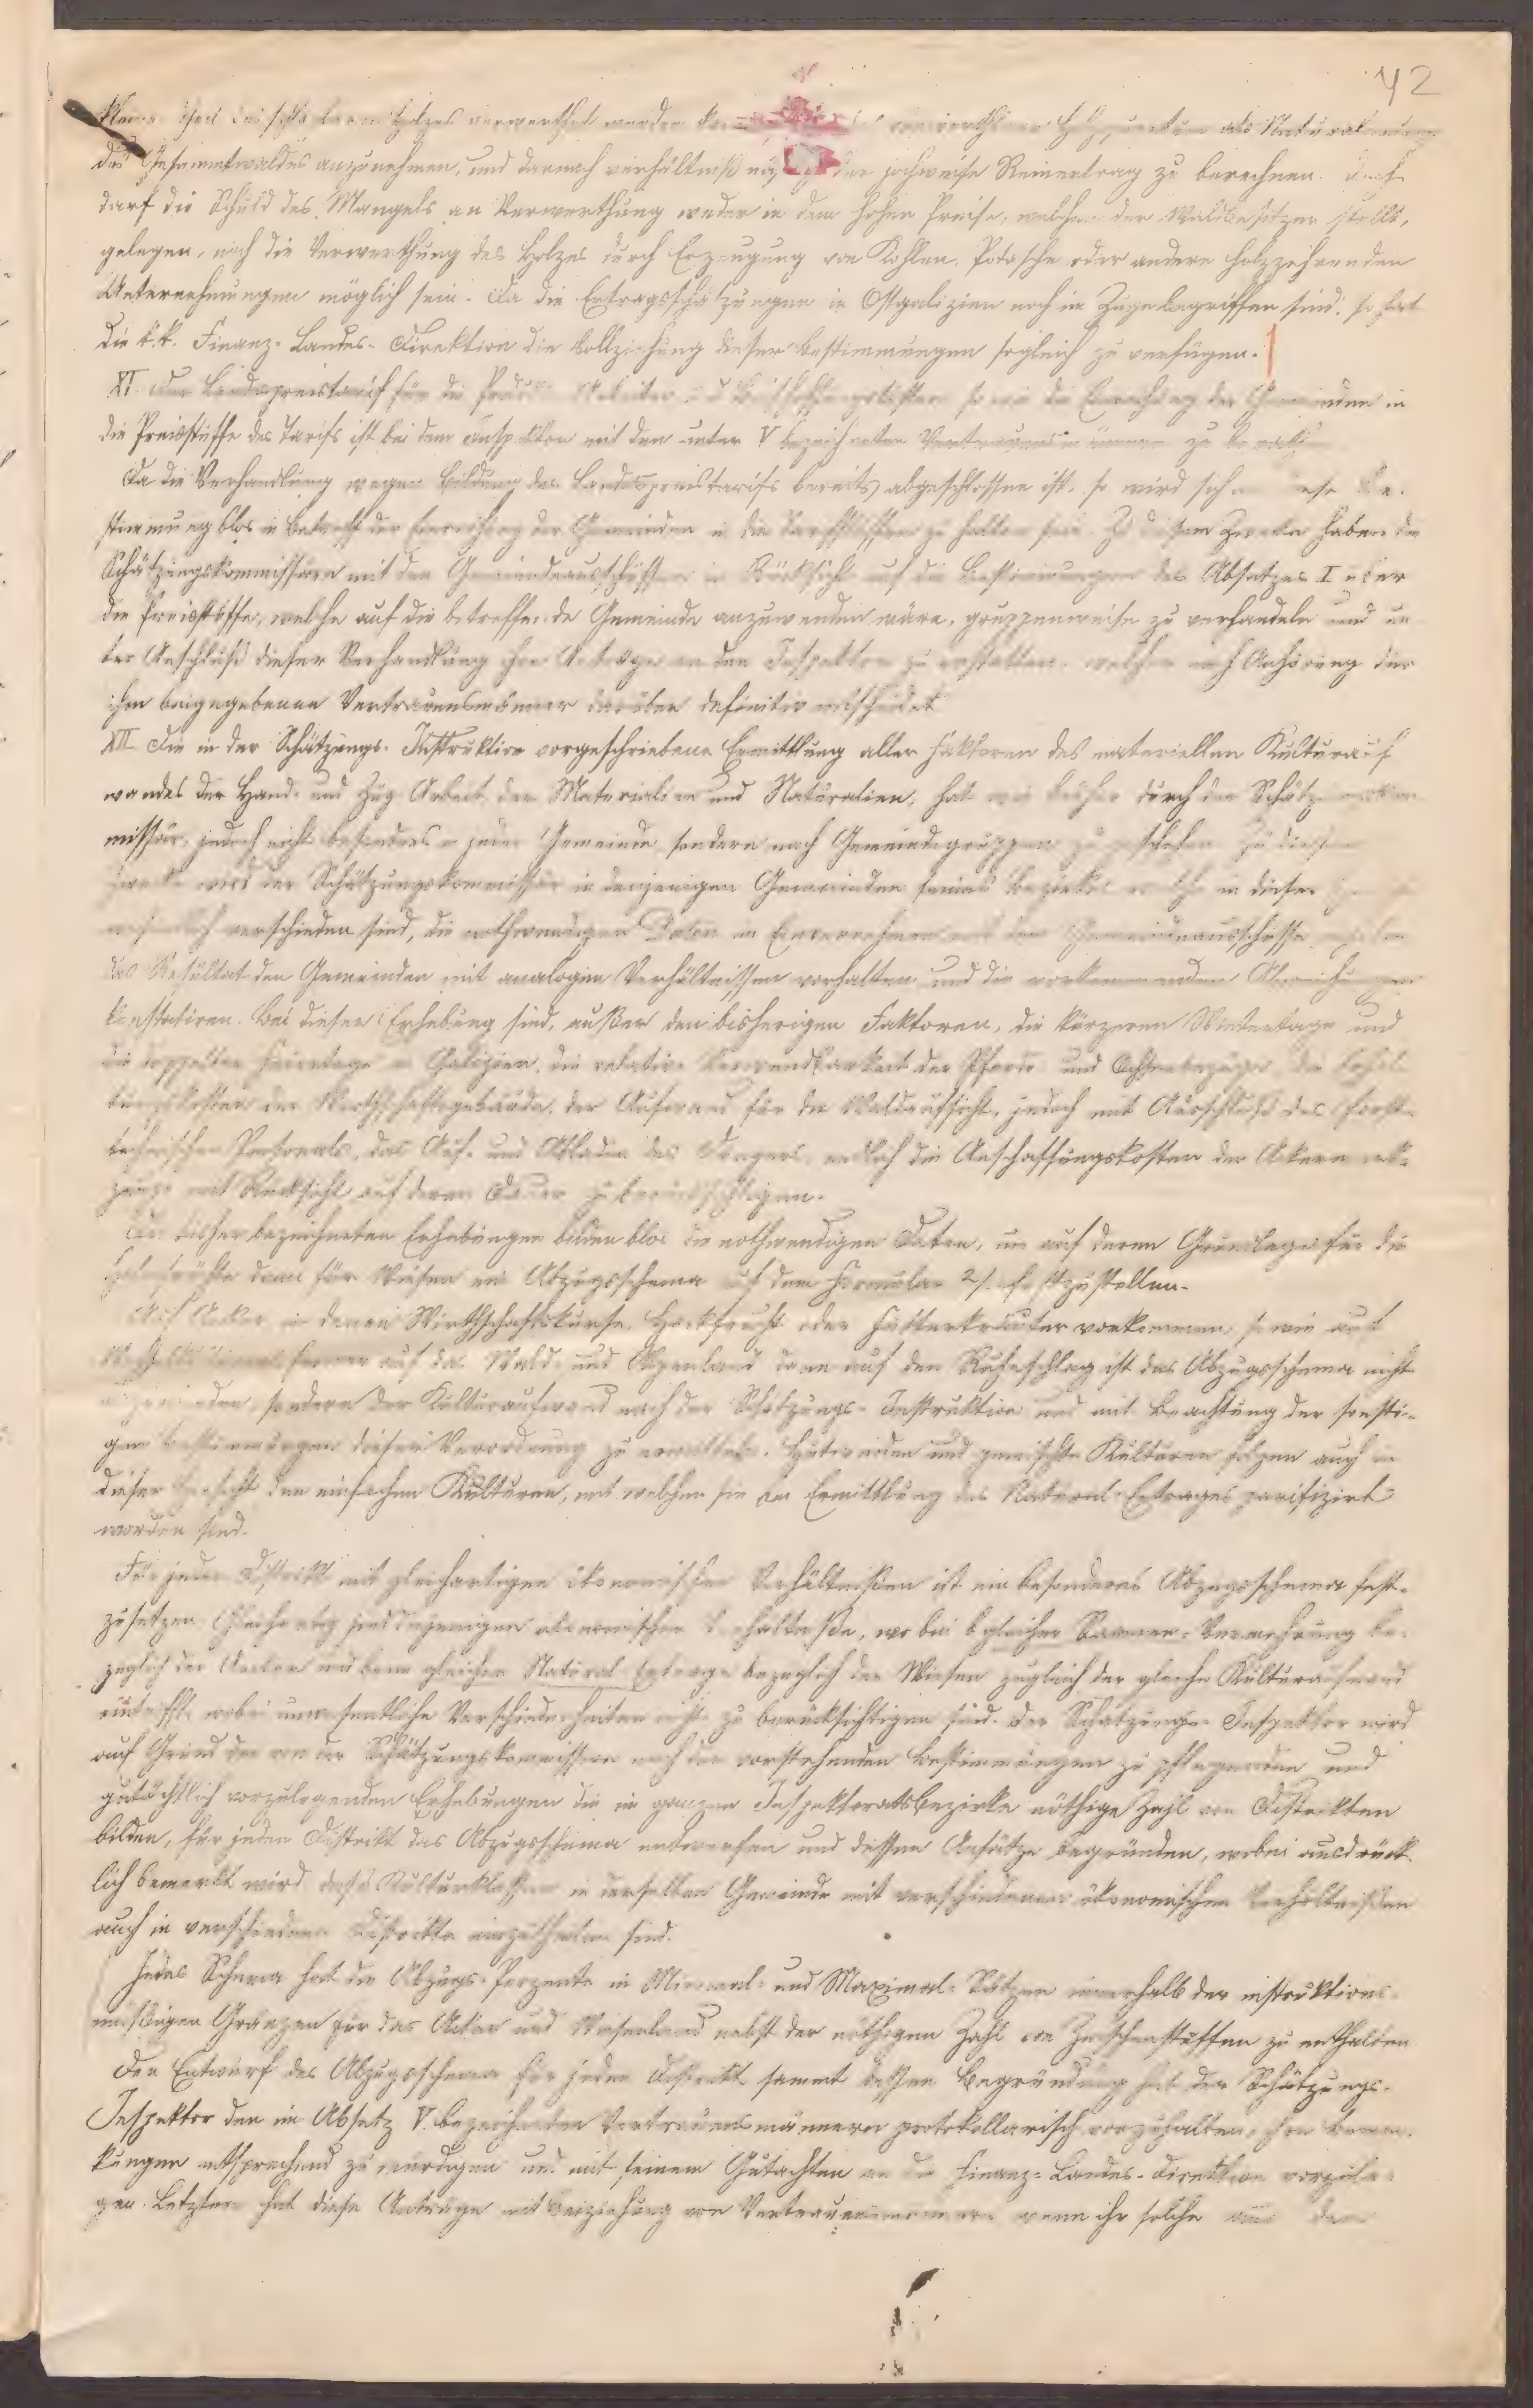 42
Theil des schlagbaren Holzes verwerthet werden als Natural
des Gesammtwaldes anzunehmen, und darnach verhältnißmäßig der jochweise Reinertrag zu berechnen. Doch
darf die Schuld des Mangels an Verwerthung weder in dem hohen Preise, welchen der Waldbesitzer stellt,
gelegen, noch die Verwerthung des Holzes durch Erzeugung von Kohlen, Potasche oder andere holzzehrenden
Unternehmungen möglich sein. Da die Ertragsschätzungen in Ostgalizien noch im Zuge begriffen sind, so hat
die k.k. Finanz-Landes-Direktion die Vollziehung dieser Bestimmungen sogleich zu verfügen.
XI. Der Landespreistarif für die so wie die Einreihung der Gemeinden in
die Preisstuffe des Tarifs ist bei dem Inspektor mit den unter V bezeichneten Vertrauensmännern zu
Da die Verhandlung wegen Bildung des Landespreistarifs bereits abgeschlossen ist, so wird sich diese Be-
stimmung blos in Betreff der Einreihung der Gemeinden in die Tarifstuffen zu halten sein. Zu diesem Zwecke haben die
Schätzungskommissäre mit den Gemeindeausschüssen in Rücksicht auf die Bestimmungen des Absatzes I über
die Preisstuffe, welche auf die betreffende Gemeinde anzuwenden wäre, gruppenweise zu verhandeln und un-
ter Anschluß dieser Verhandlung ihre Anträge an den Inspektor zu erstatten, welcher nach Anhörung der
ihm beigegebenen Vertrauensmänner darüber definitiv entscheidet.
XII. Die in der Schätzungs-Instruktion vorgeschriebene Ermittlung aller Faktoren des materiellen Kulturauf
wandes der Hand- und Zug-Arbeit, der Materialien und Naturalien, hat wie bisher durch den Schätzungskom-
missär, jedoch nicht besonders in jeder Gemeinde sondern nach Gemeindegruppen zu geschehen. Zu diesem
Zwecke wird der Schätzungskommissär in denjenigen Gemeinden seines Bezirkes welche in dieser
wesentlich verschieden sind, die nothwendigen Daten im Einvernehmen mit dem Gemeindeausschusse
das Resultat den Gemeinden mit analogen Verhältnissen vorhalten und die vorkommenden Abweichungen
konstatiren. Bei dieser Erhebung sind, außer den bisherigen Faktoren, die kürzeren Wintertage und
die doppelten Feiertage in Galizien, die relative Verwendbarkeit der Pferde- und Ochsenbezüge, die Erhal-
tungskosten der Wirthschaftsgebäude, der Aufwand für die Waldaufsicht, jedoch mit Ausschluß des forst-
technischen Personals, das Auf- und Abladen des Düngers, endlich die Anschaffungskosten der Ackerwerk-
zeuge mit Rücksicht auf deren Dauer zu berücksichtigen.
Die bisher bezeichneten Erhebungen bilden blos die nothwendigen Daten, um auf deren Grundlage für die
Halmfrüchte dann für Wiesen ein Abzugsschema auf dem Formular 2/. festzustellen.
Auf Aecker, in denen Wirthschaftskurse, Hackfrucht oder Futterkräuter vorkommen, so wie auf
ferner auf das Wald- und Alpenland dann auf den Ruheschlag ist das Abzugsschema nicht
anzuwenden, sondern der Kulturaufwand nach der Schätzungs-Instruktion und mit Beachtung der sonsti-
gen Bestimmungen dieser Verordnung zu ermitteln. Hutweiden und gemischte Kulturen folgen auch in
dieser Hinsicht den einfachen Kulturen, mit welchen sie in Ermittlung des Natural-Ertrages parifizirt
worden sind.
Für jeden Distrikt mit gleichartigen ökonomischen Verhältnißen ist ein besonderes Abzugsschema fest-
zusetzen. Gleichartig sind diejenigen ökonomischen Verhältniße, wo bei gleicher Samen-Vermehrung be-
züglich der Aecker und beim gleichen Natural-Ertrage bezüglich der Wiesen zugleich der gleiche Kulturaufwand
eintrifft, wobei unwesentliche Verschiedenheiten nicht zu berücksichtigen sind. Der Schätzungs-Inspektor wird
auf Grund der von den Schätzungskommissären nach den vorstehenden Bestimmungen zu pflegenden und
gutächtlich vorzulegenden Erhebungen die im ganzen Inspektoratsbezirke nöthige Zahl von Distrikten
bilden, für jeden Distrikt das Abzugsschema entwerfen und dessen Ansätze begründen, wobei ausdrück-
lich bemerkt wird, daß Kulturklassen in derselben Gemeinde mit verschiedenen ökonomischen Verhältnißen
auch in verschiedene Distrikte einzutheilen sind.
Jedes Schema hat die Abzugs-Perzente in Minimal- und Maximal-Sätzen innerhalb der instruktions-
mäßigen Gränzen für das Acker und Wiesenland nebst der nöthigen Zahl von Zwischenstuffen zu enthalten.
Den Entwurf des Abzugsschema für jeden Distrikt sammt dessen Begründung hat der Schätzungs-
Inspektor den im Absatz V. bezeichneten Vertrauensmännern protokollarisch vorzuhalten, ihre Bemer-
kungen entsprechend zu würdigen und mit seinem Gutachten an die Finanz-Landes-Direktion vorzule-
gen. Letztere hat diese Anträge mit Beiziehung von Vertrauensmännern wenn ihr solche aus dem